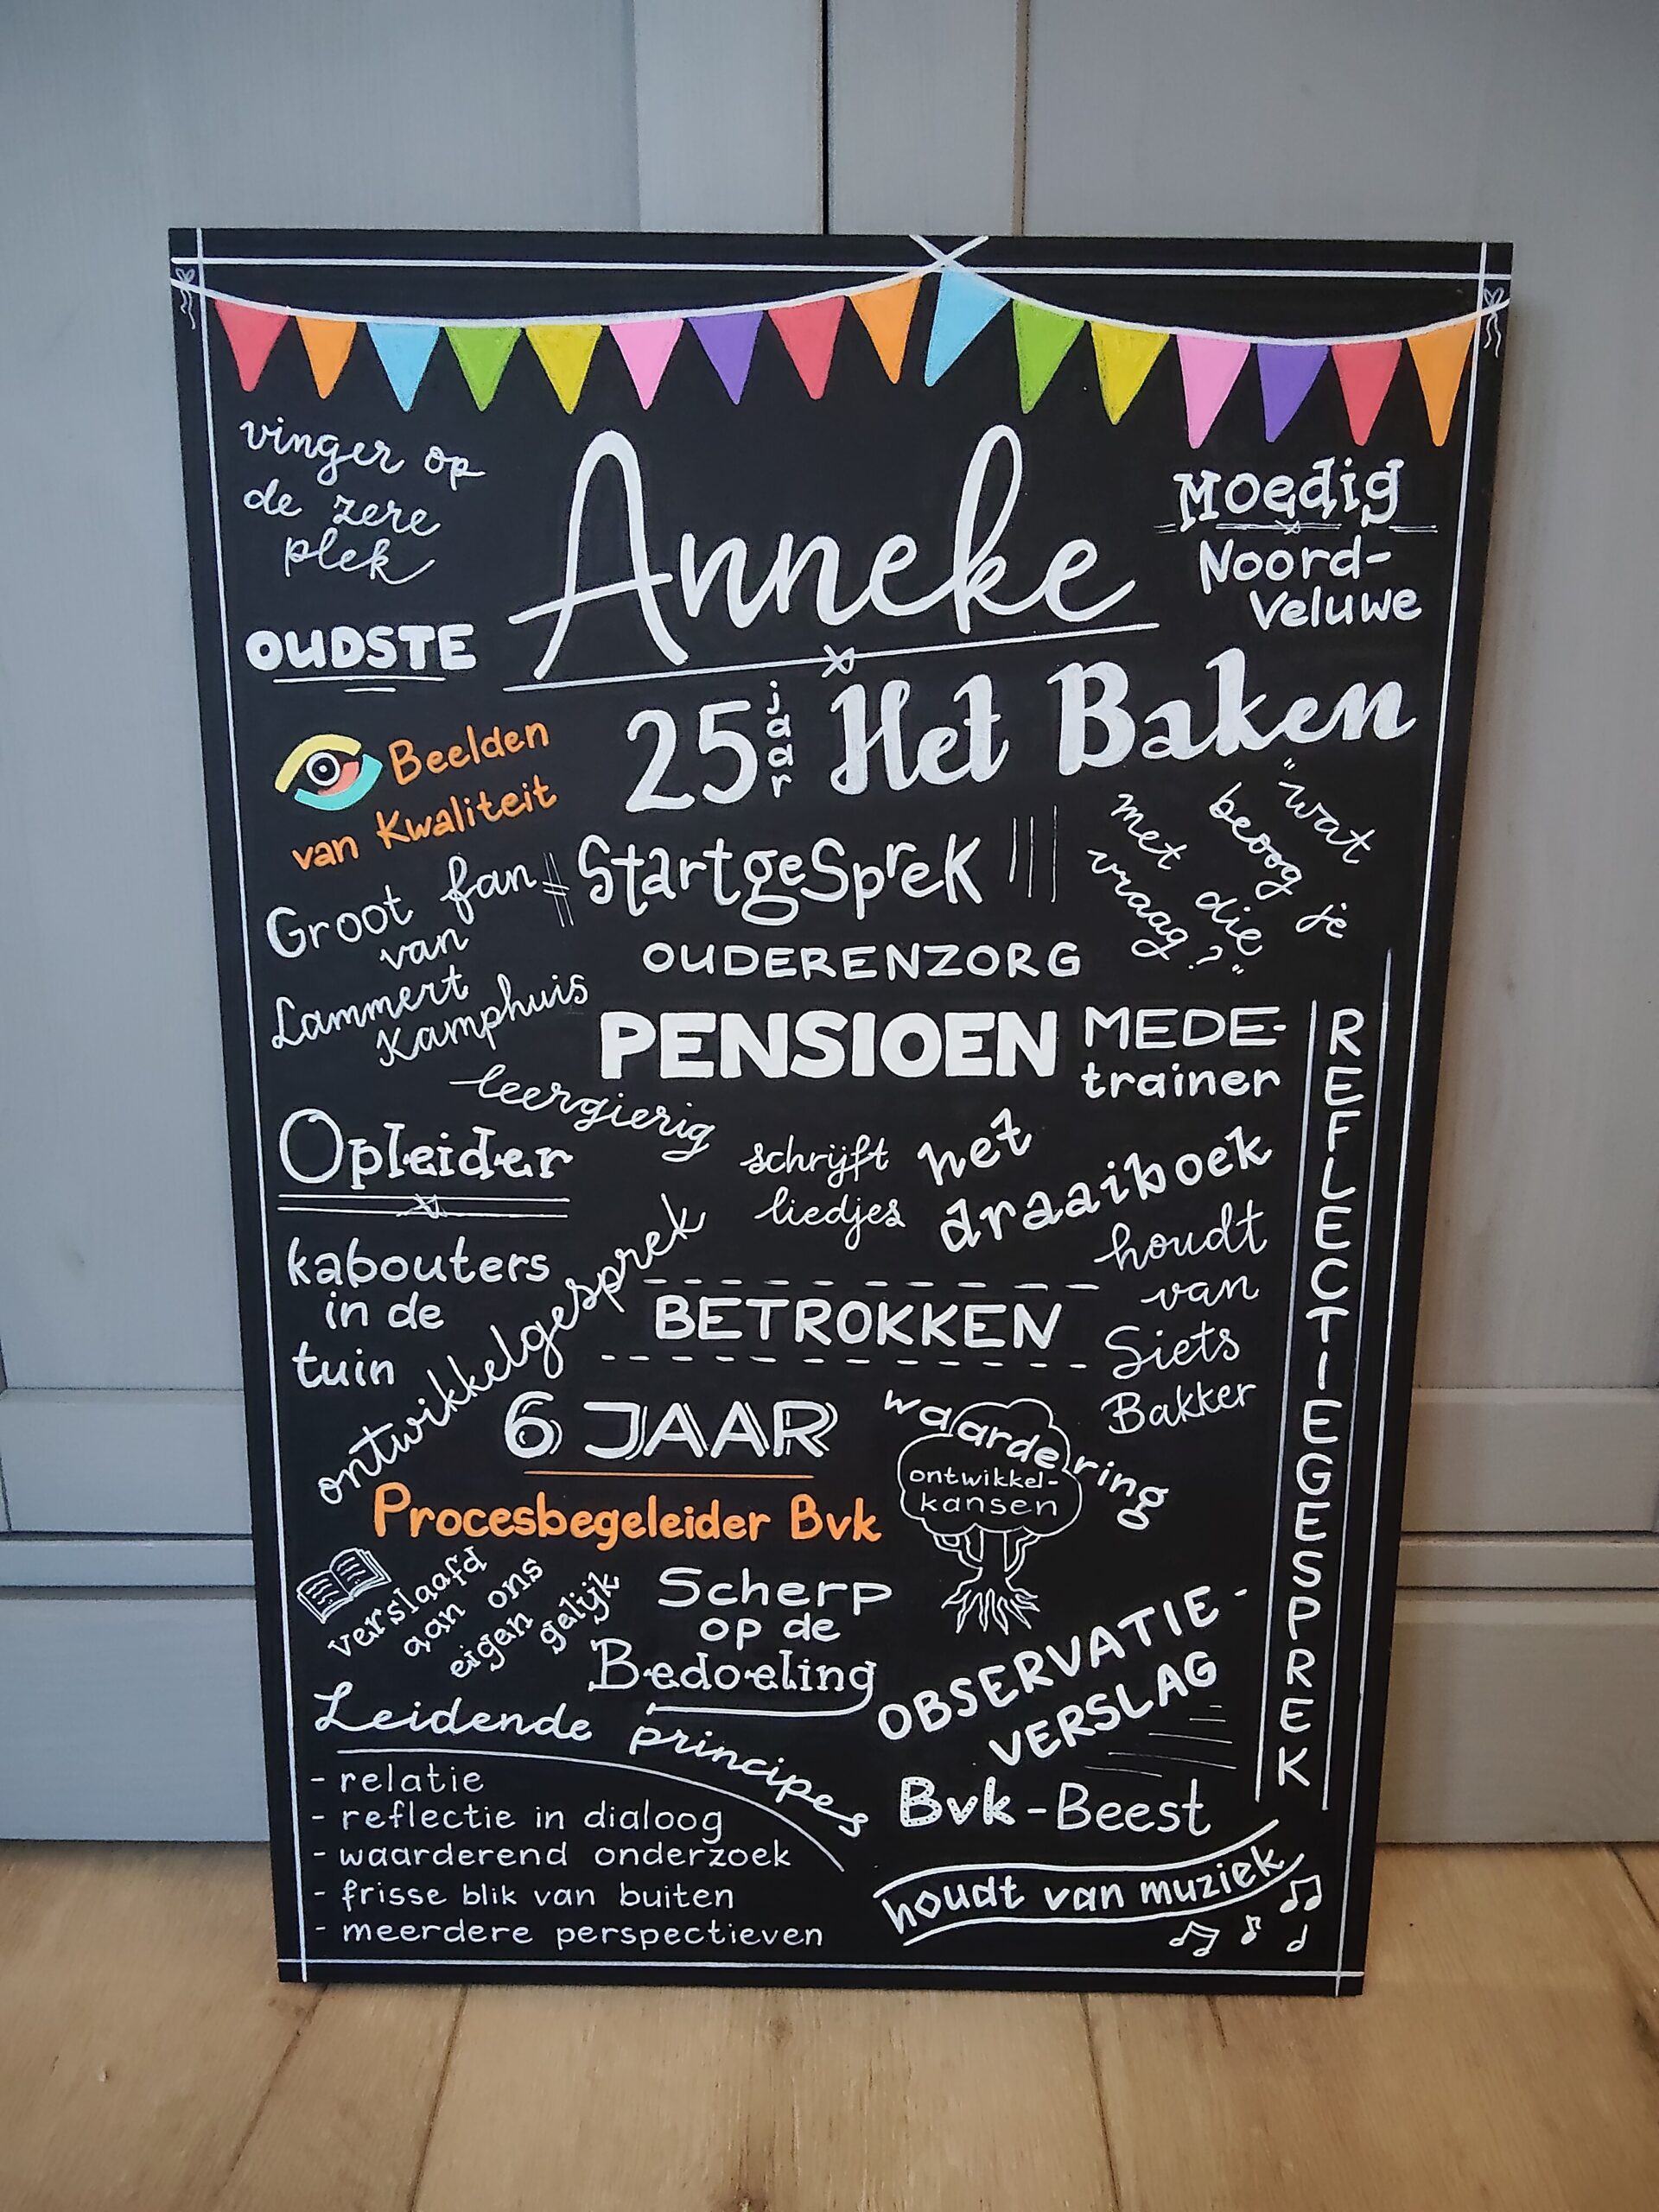 vinger op
de zere
plek
Anneke
Moedig
Noord-
Veluwe
OUDSTE
25 jaar Het Baken
Beelden
van Kwaliteit
StartgeSprek
"wat
beoog je
met die
vraag?"
Groot fan
van
Lammert
Kamphuis
OUDERENZORG
PENSIOEN
MEDE-
trainer
REFLECTIEGESPREK
leergierig
Opleider
schrijft
liedjes
het
draaiboek
kabouters
in de
tuin
ontwikkelgesprek
BETROKKEN
houdt
van
Siets
Bakker
6 JAAR
Procesbegeleider Bvk
waardering
ontwikkel-
kansen
verslaafd
aan ons
eigen gelijk
Scherp
op de
Bedoeling
OBSERVATIE-
VERSLAG
Leidende principes
- relatie
- reflectie in dialoog
- waarderend onderzoek
- frisse blik van buiten
- meerdere perspectieven
Bvk-Beest
houdt van muziek